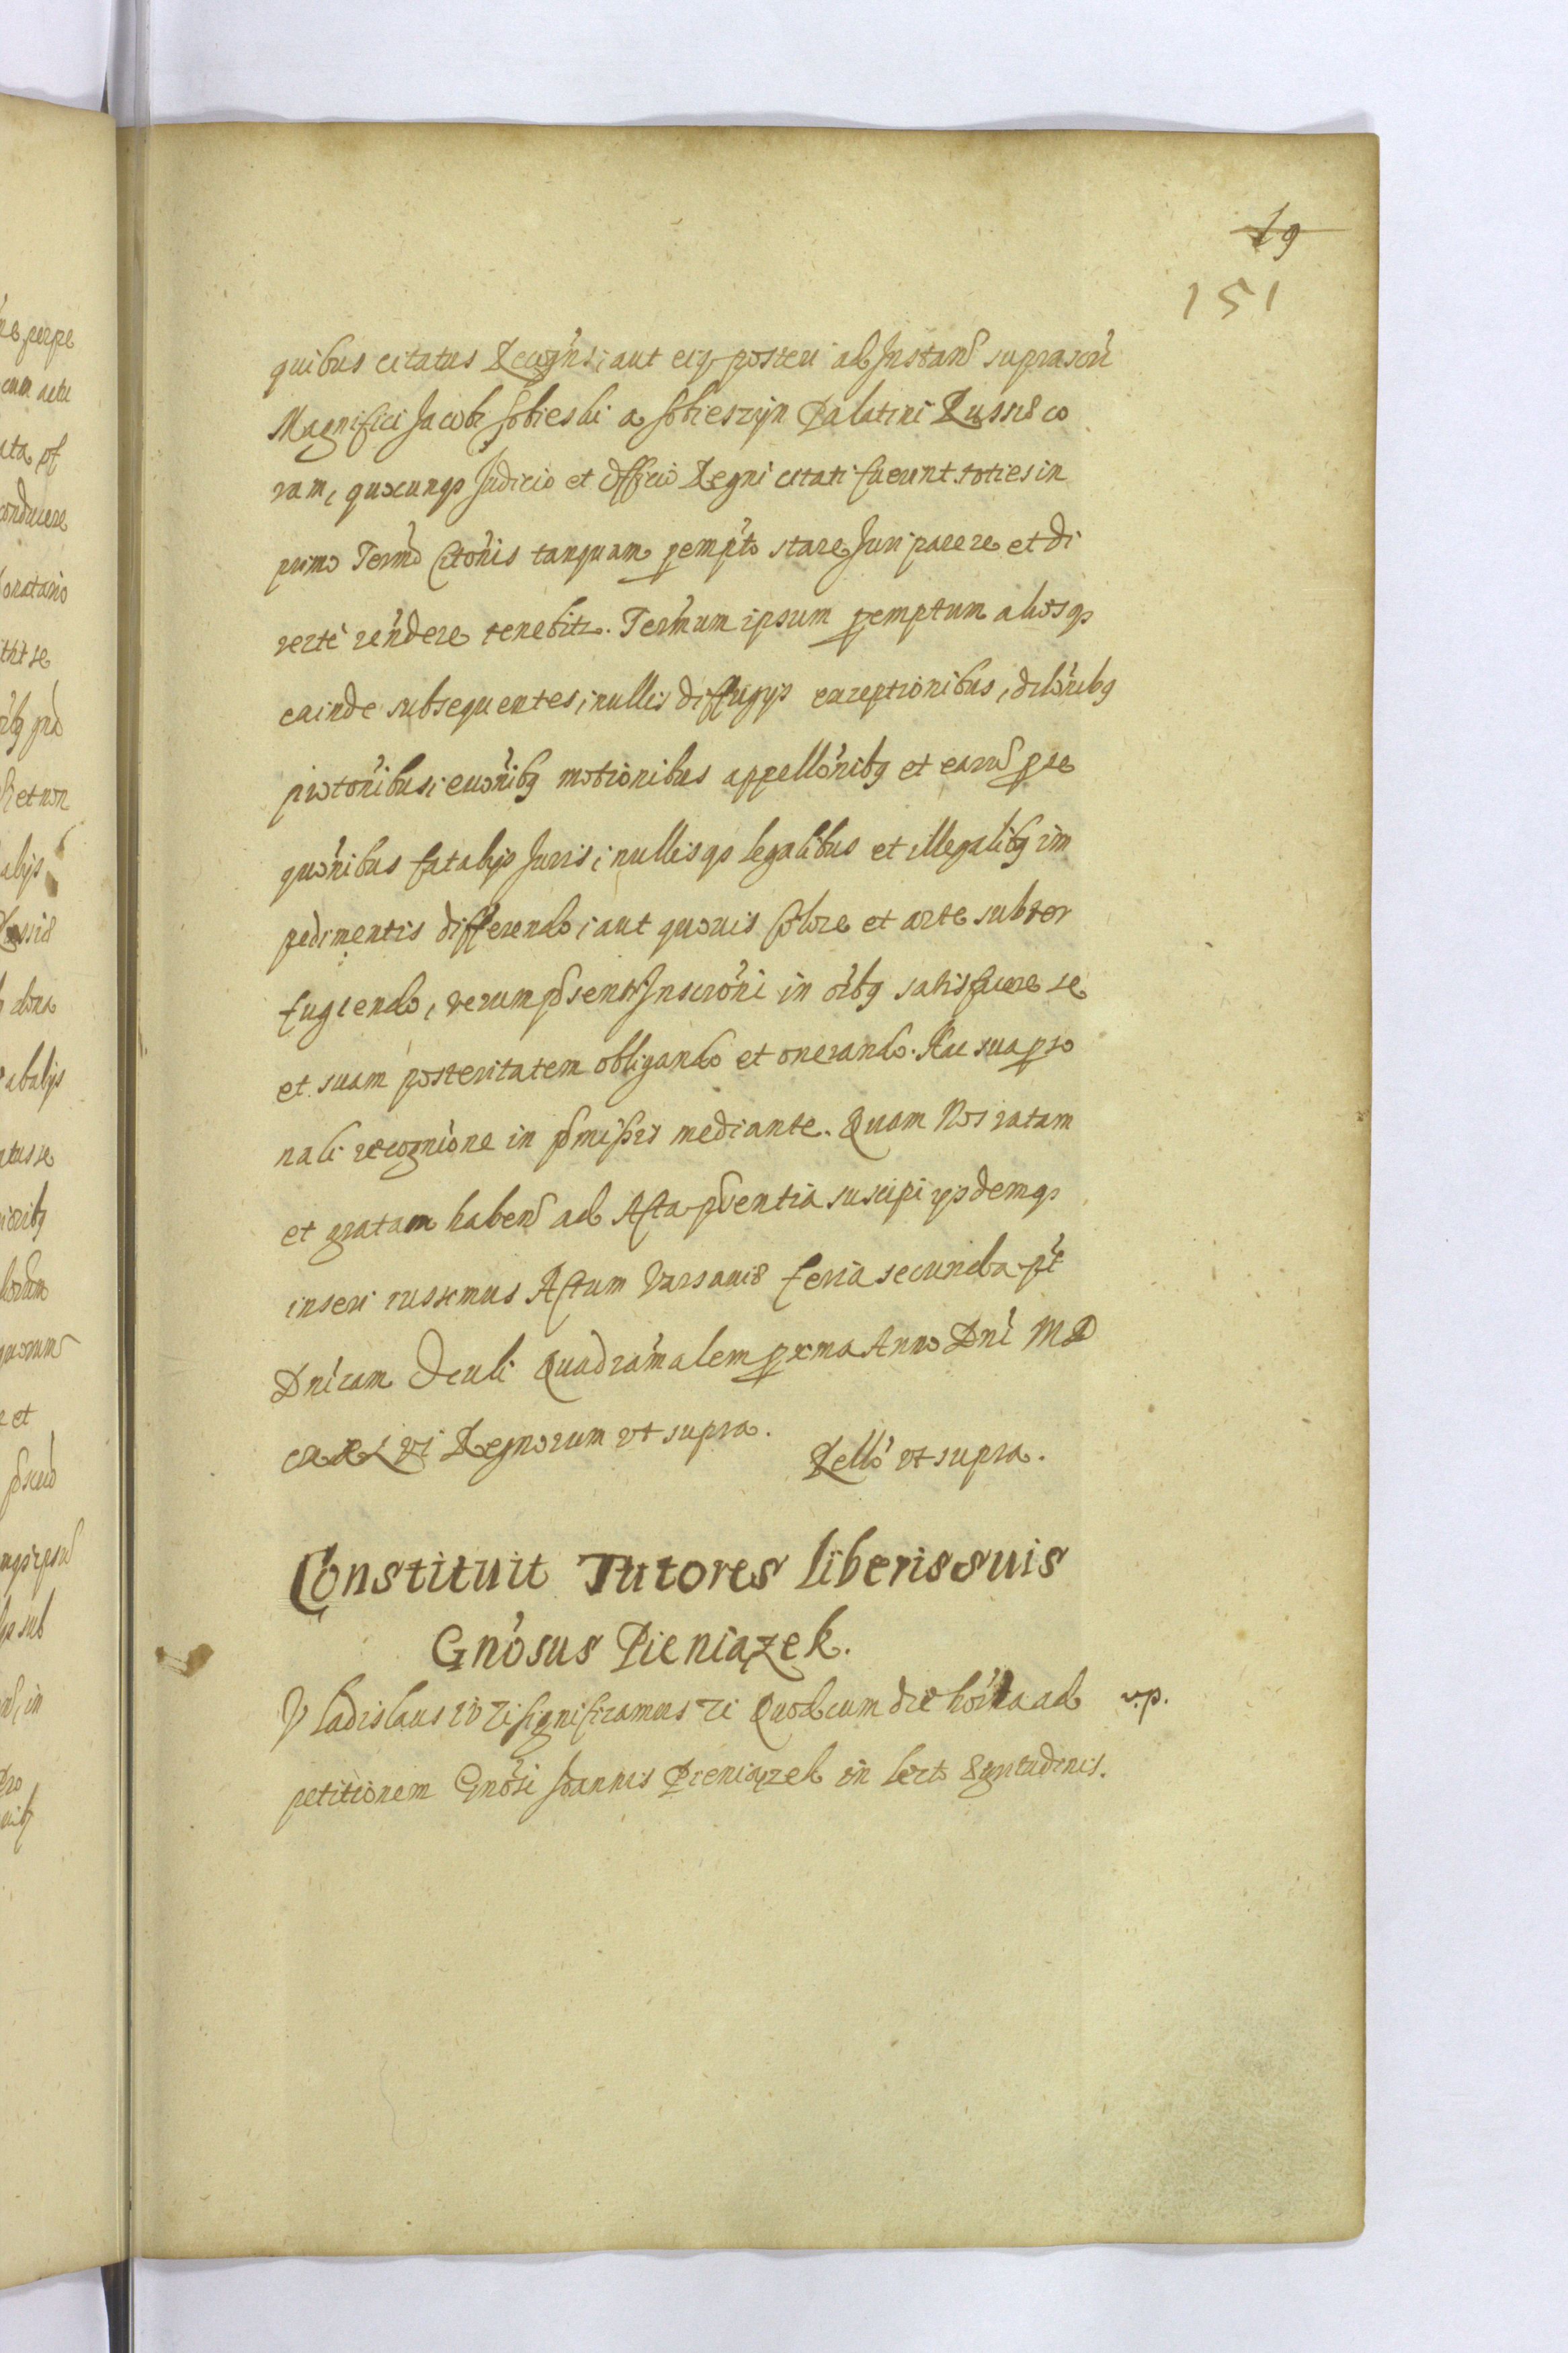 19
151
quibus citatus Recogn̄s; aut eiq posteri ad Instanˢ suprascri
Magnifici Jacobi Sobieski a Sobieszyn Palatini Russiæ co
ram, quocunqs Judicio et Officio Regni citati fuerint. toties in
primo Termō Citōnis tanquam pempto stare Juri parere et di
recte rēndere tenebitr. Termum ipsum pemptum aliosqs
exinde subsequentes, nullis diffugijs exceptionibus, dilōnibq
prōtōnibus, euōnibq motionibus appellōnibq et earū pse
quōnibus fatalijs Juris, nullisqs legalibus et illegalibq im
pedimentis differendo, aut quouis Colore et arte subter
fugiendo, verum psenti Inscrōni in oībq satisfacere se
et suam posteritatem obligando et onerando. Hac sua pso
nali recognione in pmissis mediante. Quam Nos ratam
et gratam habenˢ ad Acta pˢentia suscipi ijsdemqs
inseri iussimus Actum Varsauiæ feria secunda pt
Dnicam Oculi Quadramalem pxma Anno Dni MD
CXLVI Regnorum vt supra.
Rello vt supra.
Constituit Tutores liberis suis
Gnōsus Pieniązek.
Vladislaus IV &c significamus &c Quod cum die hōīna ad v.p.
petitionem Gnōsi Joannis Pieniązek in lecto Egritudinis.